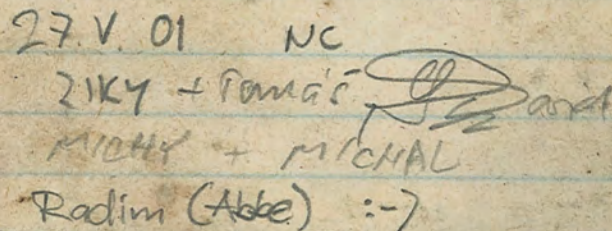 27. V. 01 NC
ZIKY + Tomáš David
MICHY + MICHAL
Radim (Abbe) :-)